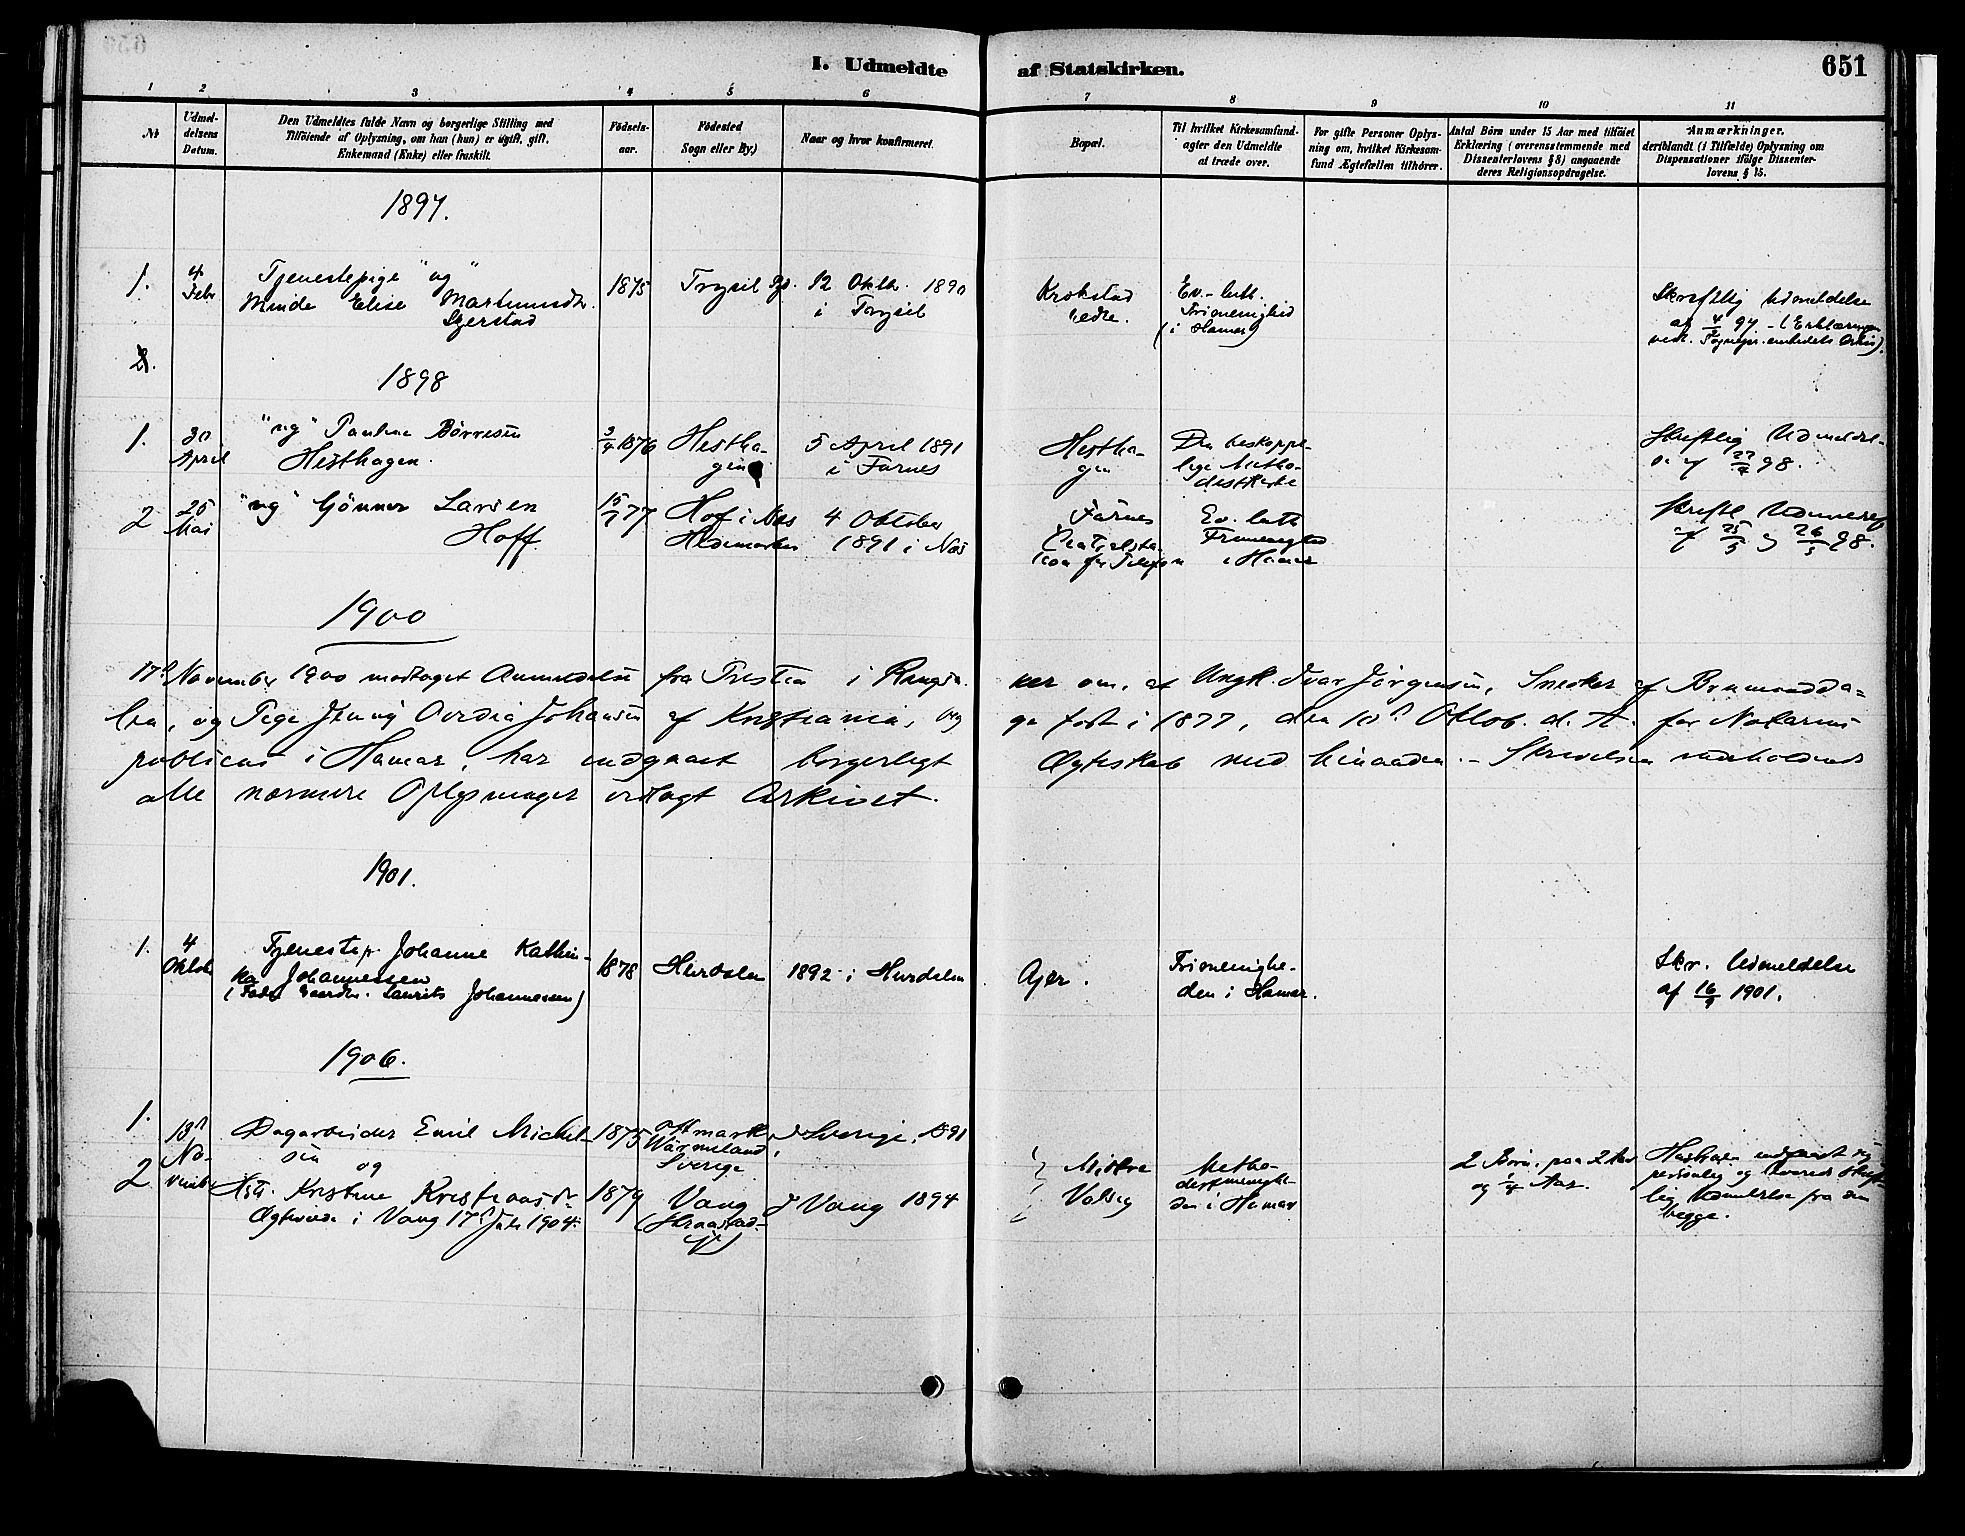 I. Udmeldte af Statskirken.
651
1 2 3 4 5 6 7 8 9 10 11
No
Udmel-
delsens
Datum.
Den Udmeldtes fulde Navn og borgerlige Stilling med
Tilföiende af Oplysning, om han (hun) er ugift, gift,
Enkemand (Enke) eller fraskilt.
Födsels-
aar.
Födested
Sogn eller By.)
Naar og hvor konfirmeret.
Bopæl.
Til hvilket Kirkesamfund
agter den Udmeldte
at træde over.
For gifte Personer Oplys-
ning om, hvilket Kirkesam-
fund Ægtefællen tilhörer.
Antal Börn under 15 Aar med tilföiet
Erklæring (overensstemmende med
Dissenterlovens § 8) angaaende
deres Religionsopdragelse.
Anmærkninger,
deriblandt (i Tilfælde) Oplysning om
Dispensationer ifölge Dissenter-
lovens § 15.
1897.
1.
4
Febr
Tjenestepige "ug"
Minda Elise Martinusdtr.
1875
Trysil Pgj.
12 Oktbr. 1890
i Trysil
Krokstad
nedre.
Ev.-luth.
Frimenighed
(i Hamar)
Skriftlig Udmeldelse
af 4/2 97 - (Erklæringen
1898
1.
30
April
"ug" Pauline Børresen
Hesthagen.
3/4 1876
Hestha-
gen
5 April 1891
i Furnes
Hestha-
gen
Den biskoppe-
lige Metho-
distkirke
Skriftlig Udmeldel-
se af 27/4 98.
2
25
Mai
"ug" Gunner Larsen
Hoff.
15/7 77
Hof i Næs
Hedemarken
4 Oktober
1891 i Næs
Furnes
Centralsta-
tion for Telefon
Ev. luth
Frimenighed
i Hamar
Skriftl Udmeldelse
af 25/5 og 26/5 98.
1900
17d November 1900 modtoget Anmeldelse fra Presten i Ringsa-
ker om, at Ungk. Ivar Jørgensen, Snedker af Brumundda-
len, og Pige Jenny Ovedia Johansen af Kristiania, og-
saa født i 1877, den 10d Oktob. d. A. for Notarius
publicus i Hamar, har indgaaet borgerligt
Ægteskab med hinanden. - Skrivelsen indeholdende
alle nærmere Oplysninger vedlagt Arkivet.
1901.
1.
4
Oktob
Tjenestep. Johanne Kathin-
ka Johannessen
(Fader Gaardbr. Laurits Johannessen)
1878
Hurdalen
1892 i Hurdalen
Ajer.
Frimenighe-
den i Hamar.
Skr. Udmeldelse
af 16/9 1901.
1906.
1.
13d
No-
vember
Dagarbeider Emil Mickel-
sen og
1875
Wärmeland,
Sverige
i Sverige, 1891
2
Hst. Kristine Kristiansdr
Ægteviede i Vang 17d Juli 1904.
1879
Vang
i Vang 1894
Midtre
Valseg
Metho-
distmenighe-
den i Hamar
2 Børn, paa 2 Aar
og 1/4 Aar
personlig og leverede skrift-
lig Udmeldelse fra dem
begge.